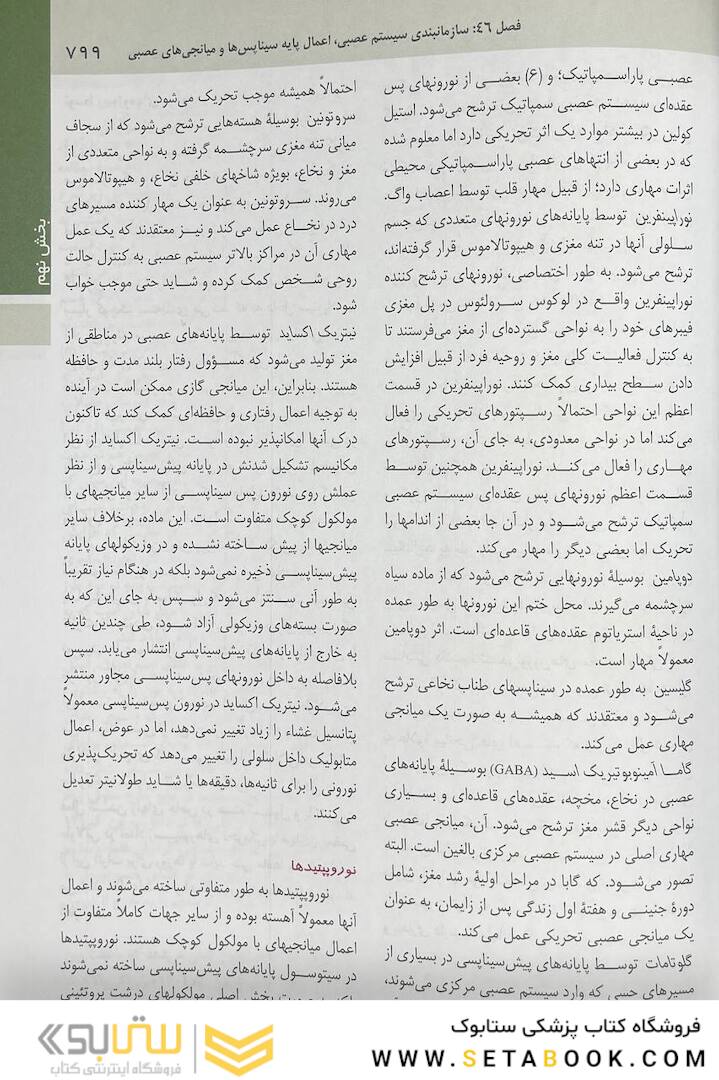 فصل ٤٦: سازمانبندی سیستم عصبی، اعمال پایه سیناپس‌ها و میانجی‌های عصبی ۷۹۹
عصبـی پاراسـمپاتیک؛ و (۶) بعضـی از نورونهای پس
عقده‌ای سیسـتـم عصبی سمپاتیک ترشح می‌شود. استیل
کولین در بیشتر موارد یک اثر تحریکی دارد اما معلوم شده
که در بعضی از انتهاهای عصبی پاراسـمپاتیکی محیطی
اثرات مهاری دارد؛ از قبیل مهار قلب توسط اعصاب واگ.
نوراپینفرین توسط پایانه‌های نورونهای متعددی که جسم
سـلولی آنها در تنه مغزی و هیپوتالاموس قرار گرفته‌اند،
ترشح می‌شود. به طور اختصاصی، نورونهای ترشح کننده
نوراپینفرین واقع در لوکوس سـرولئوس در پل مغزی
فیبرهای خود را به نواحی گسترده‌ای از مغز می‌فرستند تا
به کنترل فعالیت کلی مغز و روحیه فرد از قبیل افزایش
دادن سـطح بیداری کمک کنند. نوراپینفرین در قسمت
اعظم این نواحی احتمالاً رسـپتورهای تحریکی را فعال
می‌کند اما در نواحی معدودی، به جای آن، رسـپتورهای
مهـاری را فعال می‌کنـد. نوراپینفرین همچنین توسـط
قسـمت اعظم نورونهای پس عقده‌ای سیسـتـم عصبی
سمپاتیک ترشح می‌شـود و در آن جا بعضی از اندامها را
تحریک اما بعضی دیگر را مهار می‌کند.
دوپامین بوسیلهٔ نورونهایی ترشح می‌شود که از ماده سیاه
سرچشمه می‌گیرند. محل ختم این نورونها به طور عمده
در ناحیهٔ استریاتوم عقده‌های قاعده‌ای است. اثر دوپامین
معمولاً مهار است.
گلیسین به طور عمده در سیناپسهای طناب نخاعی ترشح
می‌شـود و معتقدند که همیشـه به صورت یک میانجی
مهاری عمل می‌کند.
گامـا آمینوبوتیریک اسـید (GABA) بوسـیلهٔ پایانه‌های
عصبی در نخاع، مخچه، عقده‌های قاعده‌ای و بسیاری
نواحی دیگر قشر مغز ترشح می‌شود. آن، میانجی عصبی
مهاری اصلی در سیستم عصبی مرکزی بالغین است. البته
تصور می‌شـود. که گابا در مراحل اولیهٔ رشد مغز، شامل
دورهٔ جنینـی و هفتهٔ اول زندگی پس از زایمان، به عنوان
یک میانجی عصبی تحریکی عمل می‌کند.
گلوتامات توسـط پایانه‌های پیش‌سیناپسی در بسیاری از
مسیرهای حسی که وارد سیستم عصبی مرکزی می‌شوند،
احتمالاً همیشه موجب تحریک می‌شود.
سروتونین بوسیلهٔ هسته‌هایی ترشح می‌شود که از سجاف
میانی تنه مغزی سرچشـمه گرفته و به نواحی متعددی از
مغز و نخاع، بویژه شاخهای خلفی نخاع، و هیپوتالاموس
می‌روند. سـروتونین به عنوان یک مهار کننده مسیرهای
درد در نخـاع عمل می‌کند و نیـز معتقدند که یک عمل
مهاری آن در مراکز بالاتر سیستم عصبی به کنترل حالت
روحی شـخص کمک کرده و شـاید حتی موجب خواب
شود.
نیتریک اکساید توسـط پایانه‌های عصبی در مناطقی از
مغز تولید می‌شود که مسـؤول رفتار بلند مدت و حافظه
هستند. بنابراین، این میانجی گازی ممکن است در آینده
به توجیه اعمال رفتاری و حافظه‌ای کمک کند که تاکنون
درک آنها امکانپذیر نبوده اسـت. نیتریک اکساید از نظر
مکانیسم تشکیل شدنش در پایانه پیش‌سیناپسی و از نظر
عملش روی نورون پس سیناپسـی از سایر میانجیهای با
مولکول کوچک متفاوت اسـت. این ماده، برخلاف سایر
میانجیها از پیش سـاخته نشـده و در وزیکولهای پایانه
پیش‌سیناپسـی ذخیره نمی‌شود بلکه در هنگام نیاز تقریباً
به طور آنی سـنتز می‌شود و سـپس به جای این که به
صورت بسته‌های وزیکولی آزاد شـود، طی چندین ثانیه
به خارج از پایانه‌های پیش‌سیناپسی انتشار می‌یابد. سپس
بلافاصله به داخل نورونهای پس‌سیناپسـی مجاور منتشر
می‌شـود. نیتریک اکساید در نورون پس‌سیناپسی معمولاً
پتانسیل غشاء را زیاد تغییر نمی‌دهد، اما در عوض، اعمال
متابولیک داخل سلولی را تغییر می‌دهد که تحریک‌پذیری
نورونی را برای ثانیه‌ها، دقیقه‌ها یا شـاید طولانیتر تعدیل
می‌کنند.
نوروپپتیدها
نوروپپتیدها به طور متفاوتی ساخته می‌شوند و اعمال
آنها معمولاً آهسته بوده و از سایر جهات کاملاً متفاوت از
اعمال میانجیهای با مولکول کوچک هستند. نوروپپتیدها
در سیتوسول پایانه‌های پیش‌سیناپسی ساخته نمی‌شوند
بخش اصلی مولکولهای درشت پروتئینی
بخش نهم
فروشگاه کتاب پزشکی ستابوک
WWW.SETABOOK.COM
ستابوک
فروشگاه اینترنتی کتاب